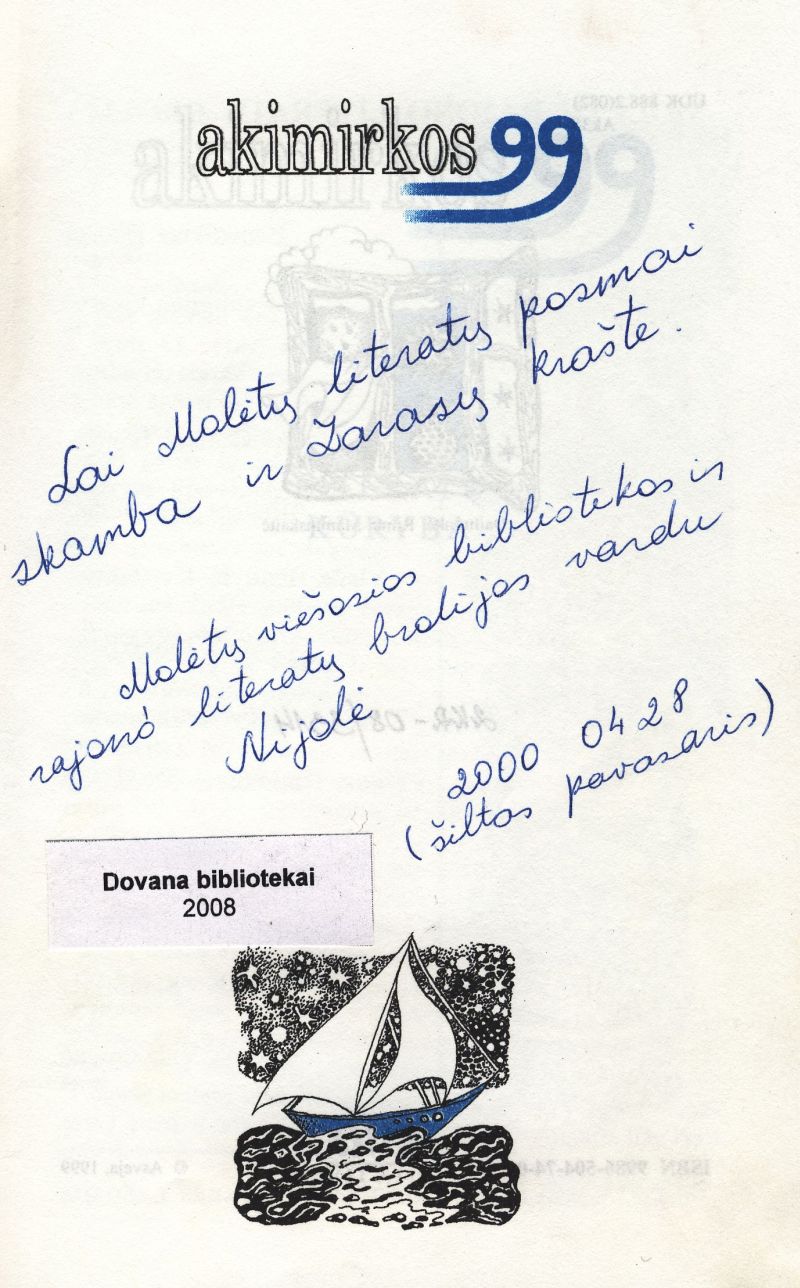 akimirkos 99
Lai Molėtų literatų posmai
skamba ir Zarasų krašte.
Molėtų viešosios bibliotekos ir
rajono literatų brolijos vardu
Nijolė
2000 04 28
(šiltas pavasaris)
Dovana bibliotekai
2008